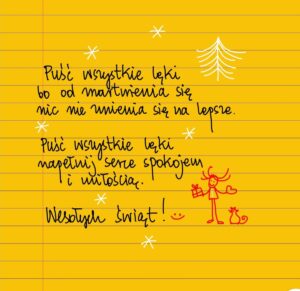 Puść wszystkie lęki
bo od martwienia się
nic nie zmienia się na lepsze.
Puść wszystkie lęki
napełnij serce spokojem
i miłością.
Wesołych Świąt!